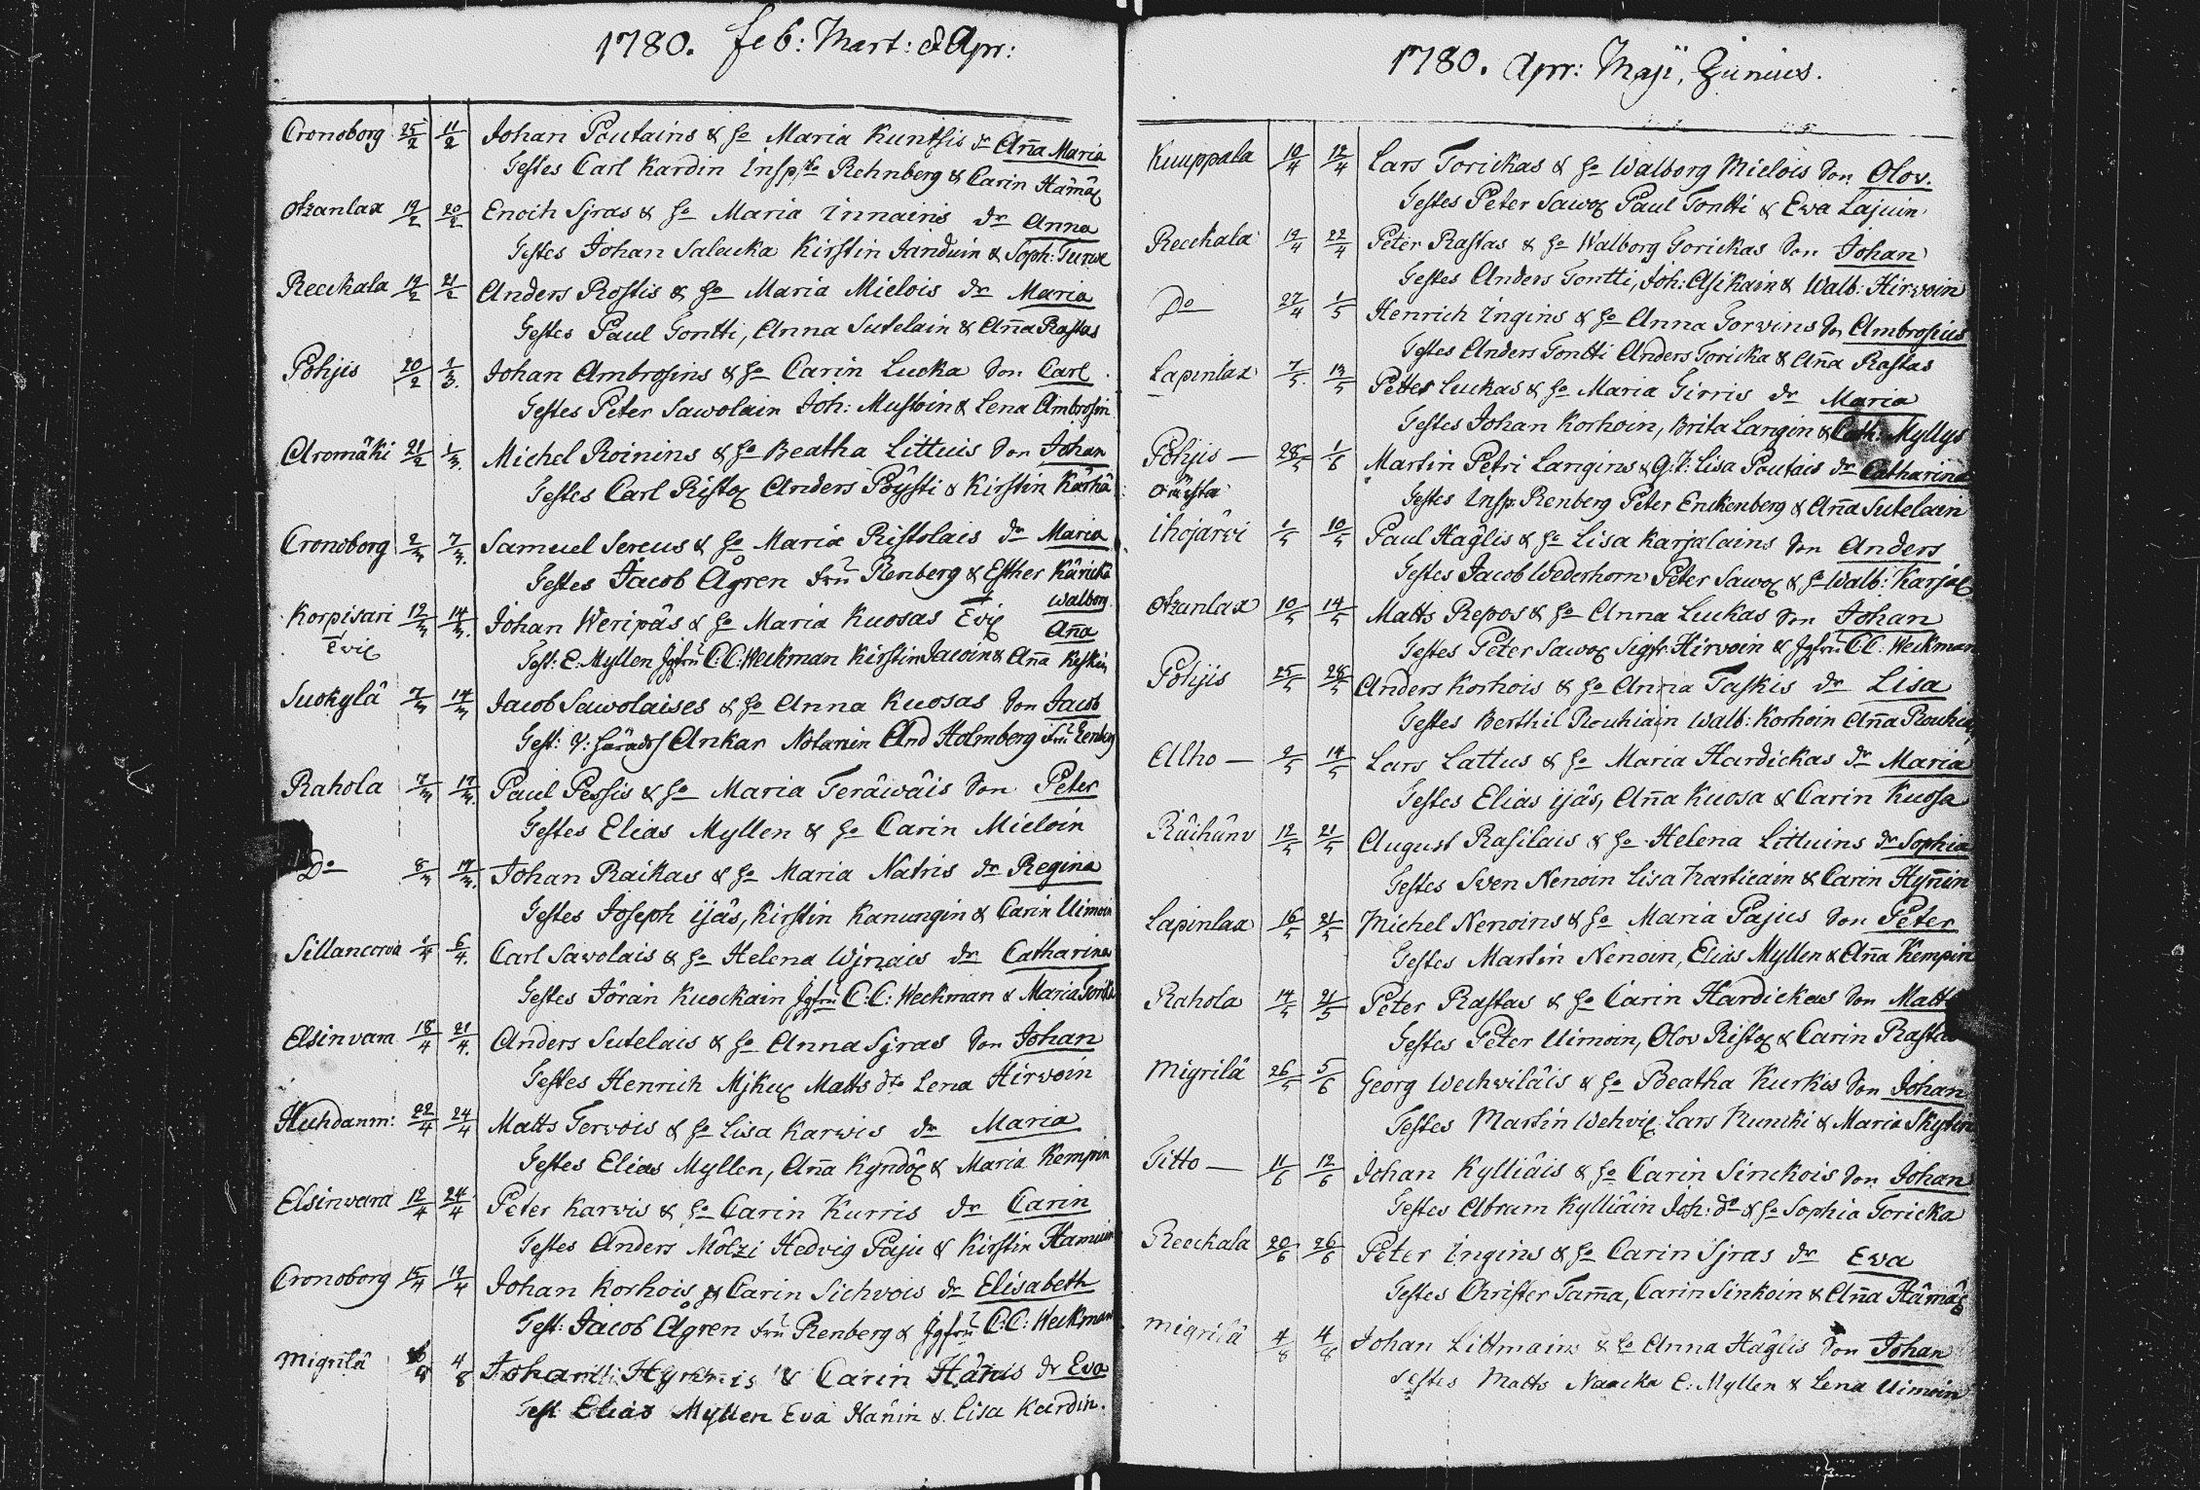 1780. Feb: Mart: & Apr:
Cronoborg 25/2 11/2 Johan Poutains & ho Maria Kuntsis dr Aña Maria
Testes Carl Kardin Insp. Rehnberg & Carin Hämäl
Otzanlax 19/2 20/2 Enoch Sjras & ho Maria Innains dr Anna
Testes Johan Salacka Kirstin Janduin & Soph:
Reckala 19/2 21/2 Anders Rostis & ho Maria Mielois dr Maria
Testes Paul Tontti, Anna Sutelain & Aña Rastas
Pohjis 20/2 1/3 Johan Ambrosins & ho Carin Lucka Son Carl
Testes Peter Sawolain Joh: Mustoin & Lena Ambrosin
Aromäki 21/2 1/3 Michel Roinins & ho Beatha Littuis Son Johan
Testes Carl Ristol Anders Pöysti & Kirstin Kärhä
Cronoborg 2/3 7/3 Samuel Sereus & ho Maria Ristolais dr Maria
Testes Jacob Ågren Fru Renberg & Esther Käricka
Korpisari 12/3 14/3 Johan Weripäs & ho Maria Kuosas Walborg
Aña
Test: E: Myllen Jgfru C:C: Weckman Kirstin Jacoin & Aña Keskin
Suokylä 7/3 14/3 Jacob Sawolaises & ho Anna Kuosas Son Jacob
Test: V: Häradsh Ankar Notarien And Holmberg Fru Renberg
Rahola 7/3 17/3 Paul Pessis & ho Maria Teräwäis Son Peter
Testes Elias Myllen & ho Carin Mieloin
Do 8/3 17/3 Johan Raikas & ho Maria Natris dr Regina
Testes Joseph ijäs, Kirstin Kanungin & Carin Uimoin
Sillancorva 1/4 6/4 Carl Savolais & ho Helena Wjnais dr Catharina
Testes Jöran Kuockain Jgfru C:C: Weckman & Maria
Elsinvara 18/4 21/4 Anders Sutelais & ho Anna Sjras Son Johan
Testes Henrich Mjkul Matts dto Lena Hirvoin
Huhdanm: 22/4 24/4 Matts Tervois & ho Lisa Karwis dr Maria
Testes Elias Myllen, Aña Kyndöl & Maria Kempin
Elsinvara 12/4 24/4 Peter Karvis & ho Carin Kurris dr Carin
Testes Anders Mölzi Hedvig Paju & Kirstin
Cronoborg 15/4 19/4 Johan Korhois & Carin Sichvois dr Elisabeth
Test: Jacob Ågren Fru Renberg & Jgfru C:C: Weckman
Migrilä 4/8 Johan & Carin Hänis dr Eva
Test Elias Myllen Eva Hänin & Lisa Kardin.
1780. Apr: Maji, Junius.
Kuuppala 10/4 12/4 Lars Torickas & ho Walborg Mielois Son Olov.
Testes Peter Sawol Paul Tontti & Ewa Lajuin
Reckala 19/4 22/4 Peter Rastas & ho Walborg Torickas Son Johan
Testes Anders Tontti, Joh: Asikain & Walb: Hirvoin
Do 27/4 1/5 Henrich Ingins & ho Anna Torvins Son Ambrosius
Testes Anders Tontti Anders Toricka & Aña Rastas
Lapinlax 7/5 13/5 Petter Luckas & ho Maria Girris dr Maria
Testes Johan Korhoin, Brita Langin & Cath: Myllys
Pohjis 28/5 1/6 Martin Petri Langins & Q:P: Lisa Poutais dr Catharina
Testes Insp: Renberg Peter Enckenberg & Aña Sutelain
Ihojärvi 1/5 10/5 Paul Häglis & ho Lisa Karjalains Son Anders
Testes Jacob Wederhorn Peter Sawol & ho Walb: Karjal
Otzanlax 10/5 14/5 Matts Repos & ho Anna Luckas Son Johan
Testes Peter Sawol Sigfr: Hirvoin & Jgfru C:C: Weckman
Pohjis 25/5 28/5 Anders Korhois & ho Anna Taskis dr Lisa
Testes Berthil Rouhiain Walb: Korhoin Aña Rouhia
Alho 9/5 14/5 Lars Lattus & ho Maria Hardickas dr Maria
Testes Elias ijäs, Aña Kuosa & Carin Kuosa
Räihänv 12/5 21/5 August Rasilais & ho Helena Littuins dr Sophia
Testes Sven Nenoin Lisa Karticain & Carin Hyñin
Lapinlax 16/5 21/5 Michel Nenoins & ho Maria Pajus Son Peter
Testes Martin Nenoin, Elias Myllen & Aña Kempin
Rahola 14/5 21/5 Peter Rastas & ho Carin Hardickas Son Matts
Testes Peter Uimoin, Olov Ristol & Carin Rasta
Migrilä 26/5 5/6 Georg Wechviläis & ho Beatha Kurkis Son Johan
Testes Martin Wehvil Lars Kuncki & Maria Skytin
Titto 11/6 12/6 Johan Kylliäis & ho Carin Sinckois Son Johan
Testes Abram Kylliäin Joh: do & ho Sophia Toricka
Reckala 20/6 26/6 Peter Ingins & ho Carin Sjras dr Ewa
Testes Christer Tam̄a, Carin Sinkoin & Aña Hämäl
Migrilä 4/8 4/8 Johan Littmains & ho Anna Häglis Son Johan
Testes Matts Naacka E: Myllen & Lena Uimoin